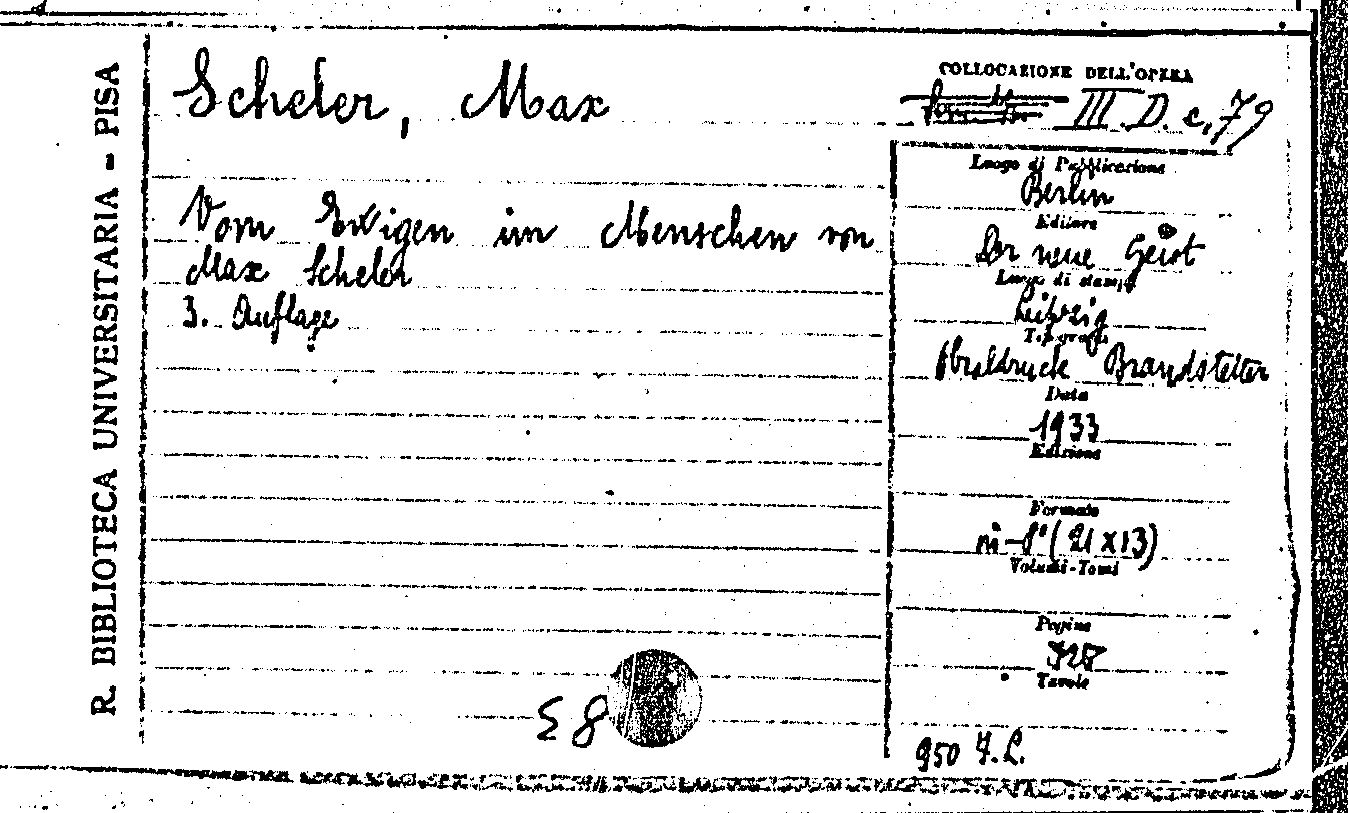 R. BIBLIOTECA UNIVERSITARIA - PISA
Scheler, Max
Vom Ewigen im Menschen von
Max Scheler
3. Auflage
COLLOCAZIONE DELL'OPERA
III. D. c, 79
Luogo di Pubblicazione
Berlin
Editore
Der neue Geist
Luogo di stampa
Leipzig
Tipografo
Brandstetter
Data
1933
Edizione
Formato
in-8° (21 x 13)
Volumi-Tomi
Pagine
Tavole
950 F. L.